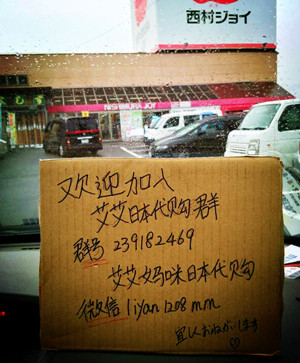 西村ジョイ
NISHIMURA JOY
欢迎加入
艾艾日本代购群
群号 239182469
艾艾妈咪日本代购
微信 liyan1208mm
宜しおねがいします